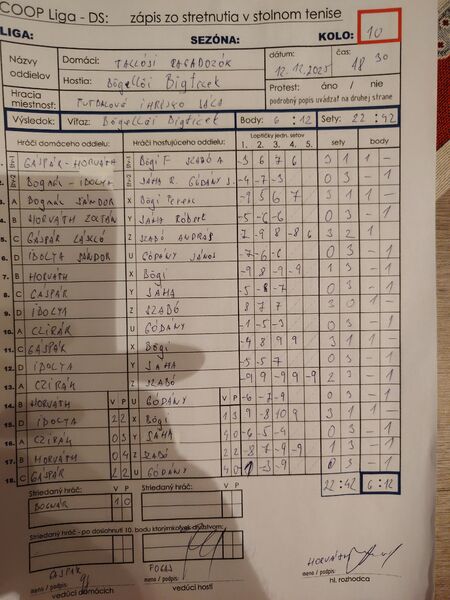 COOP Liga - DS: zápis zo stretnutia v stolnom tenise
LIGA: SEZÓNA: KOLO: 10
Názvy oddielov Domáci: TALLÓSI RAGADOZÓK dátum: 12.12.2025 čas: 18 30
Hostia: Bögellői Bigticek
Hracia miestnosť: FUTBALOVÉ IHRISKO Protest: áno / nie
podrobný popis uvádzať na druhej strane
Výsledok: Víťaz: Bögellői Bigticek Body: 6 : 12 Sety: 22 : 42
Hráči domáceho oddielu: Hráči hosťujúceho oddielu: Loptičky jedn. setov sety body
1. 2. 3. 4. 5.
1. GASPÁR-HORVÁTH Bögi F SZABÓ A -3 6 7 6 3 1 1 -
2. Bognár - IDOLYA SAHA R. GÓDÁNY J. -4 -7 -3 0 3 - 1
3. A Bognár SÁNDOR X Bögi Ferenc -9 5 6 7 3 1 1 -
4. B HORVÁTH ZOLTÁN Y SAHA RÓBERT -5 -6 -6 0 3 - 1
5. C GÁSPÁR LÁSZLÓ Z SZABÓ ANDRÁS 7 -9 8 -8 6 3 2 1
6. D IDOLYA SÁNDOR U GÓDÁNY JÁNOS -7 -6 -6 0 3 - 1
7. B HORVÁTH X Bögi -9 8 -9 -9 1 3 - 1
8. C GÁSPÁR Y SAHA -5 -8 -7 0 3 - 1
9. D IDOLYA Z SZABÓ 8 7 7 3 0 1 -
10. A CZIRÁK U GÓDÁNY -1 -5 -3 0 3 - 1
11. C GÁSPÁR X Bögi -4 8 9 9 3 1 1 -
12. D IDOLYA Y SAHA -5 -5 7 0 3 - 1
13. A CZIRÁK Z SZABÓ -9 9 -9 1 3 - 1
14. B HORVÁTH V P U GÓDÁNY V P -6 -7 -9 0 3 - 1
15. D IDOLYA 2 2 X Bögi 1 3 9 -8 10 9 3 1 1 -
16. A CZIRÁK 0 3 Y SAHA 4 0 -6 -5 -4 0 3 - 1
17. B HORVÁTH 0 4 Z SZABÓ 2 2 -8 7 -9 -9 1 3 - 1
18. C GÁSPÁR 2 2 U GÓDÁNY 4 0 -1 -3 -9 0 3 - 1
Striedaný hráč: V P Striedaný hráč: V P 22:42 6:12
BOGNÁR 1 0
Striedaný hráč - po dosiahnutí 10. bodu ktorýmkoľvek družstvom:
GÁSPÁR HORVÁTH
meno / podpis: meno / podpis: meno / podpis:
vedúci domácich vedúci hostí hl. rozhodca